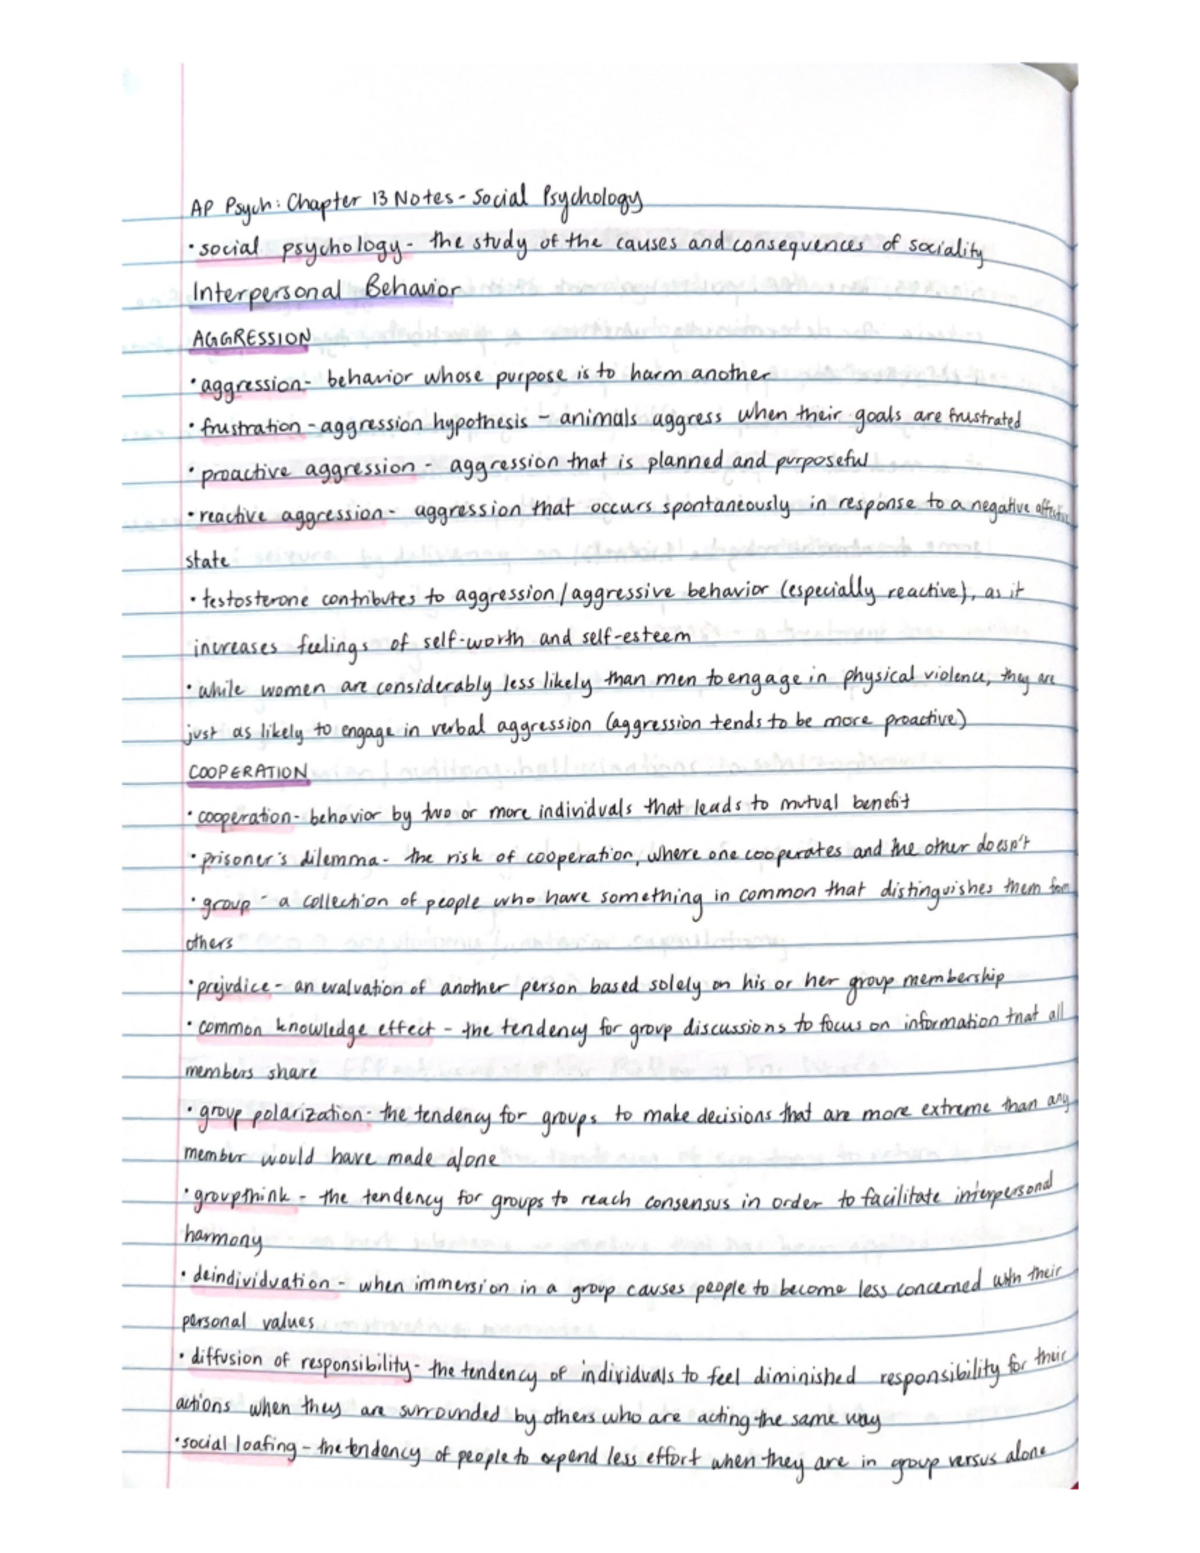 AP Psych: Chapter 13 Notes - Social Psychology
• social psychology - the study of the causes and consequences of sociality
Interpersonal Behavior
AGGRESSION
• aggression - behavior whose purpose is to harm another
• frustration - aggression hypothesis - animals aggress when their goals are frustrated
• proactive aggression - aggression that is planned and purposeful
• reactive aggression - aggression that occurs spontaneously in response to a negative affective
state
• testosterone contributes to aggression/aggressive behavior (especially reactive), as it
increases feelings of self-worth and self-esteem
• while women are considerably less likely than men to engage in physical violence, they are
just as likely to engage in verbal aggression (aggression tends to be more proactive)
COOPERATION
• cooperation - behavior by two or more individuals that leads to mutual benefit
• prisoner's dilemma - the risk of cooperation, where one cooperates and the other doesn't
• group - a collection of people who have something in common that distinguishes them from
others
• prejudice - an evaluation of another person based solely on his or her group membership
• common knowledge effect - the tendency for group discussions to focus on information that all
members share
• group polarization - the tendency for groups to make decisions that are more extreme than any
member would have made alone
• groupthink - the tendency for groups to reach consensus in order to facilitate interpersonal
harmony
• deindividuation - when immersion in a group causes people to become less concerned with their
personal values
• diffusion of responsibility - the tendency of individuals to feel diminished responsibility for their
actions when they are surrounded by others who are acting the same way
• social loafing - the tendency of people to expend less effort when they are in group versus alone